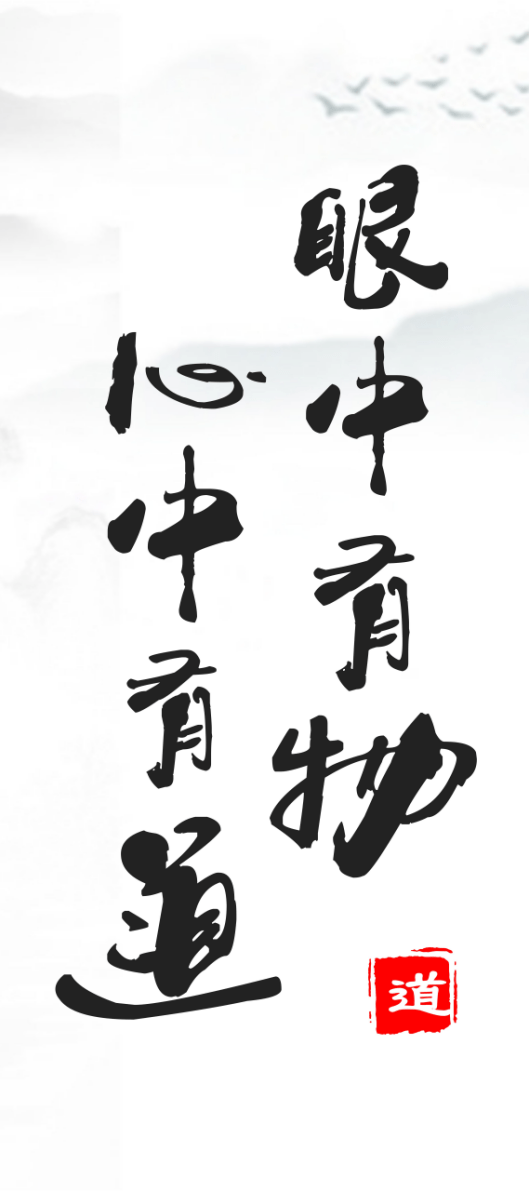 眼中有物
心中有道
道